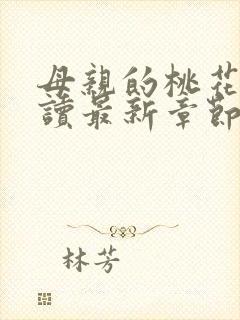 母親的桃花
讀最新章節
林芳